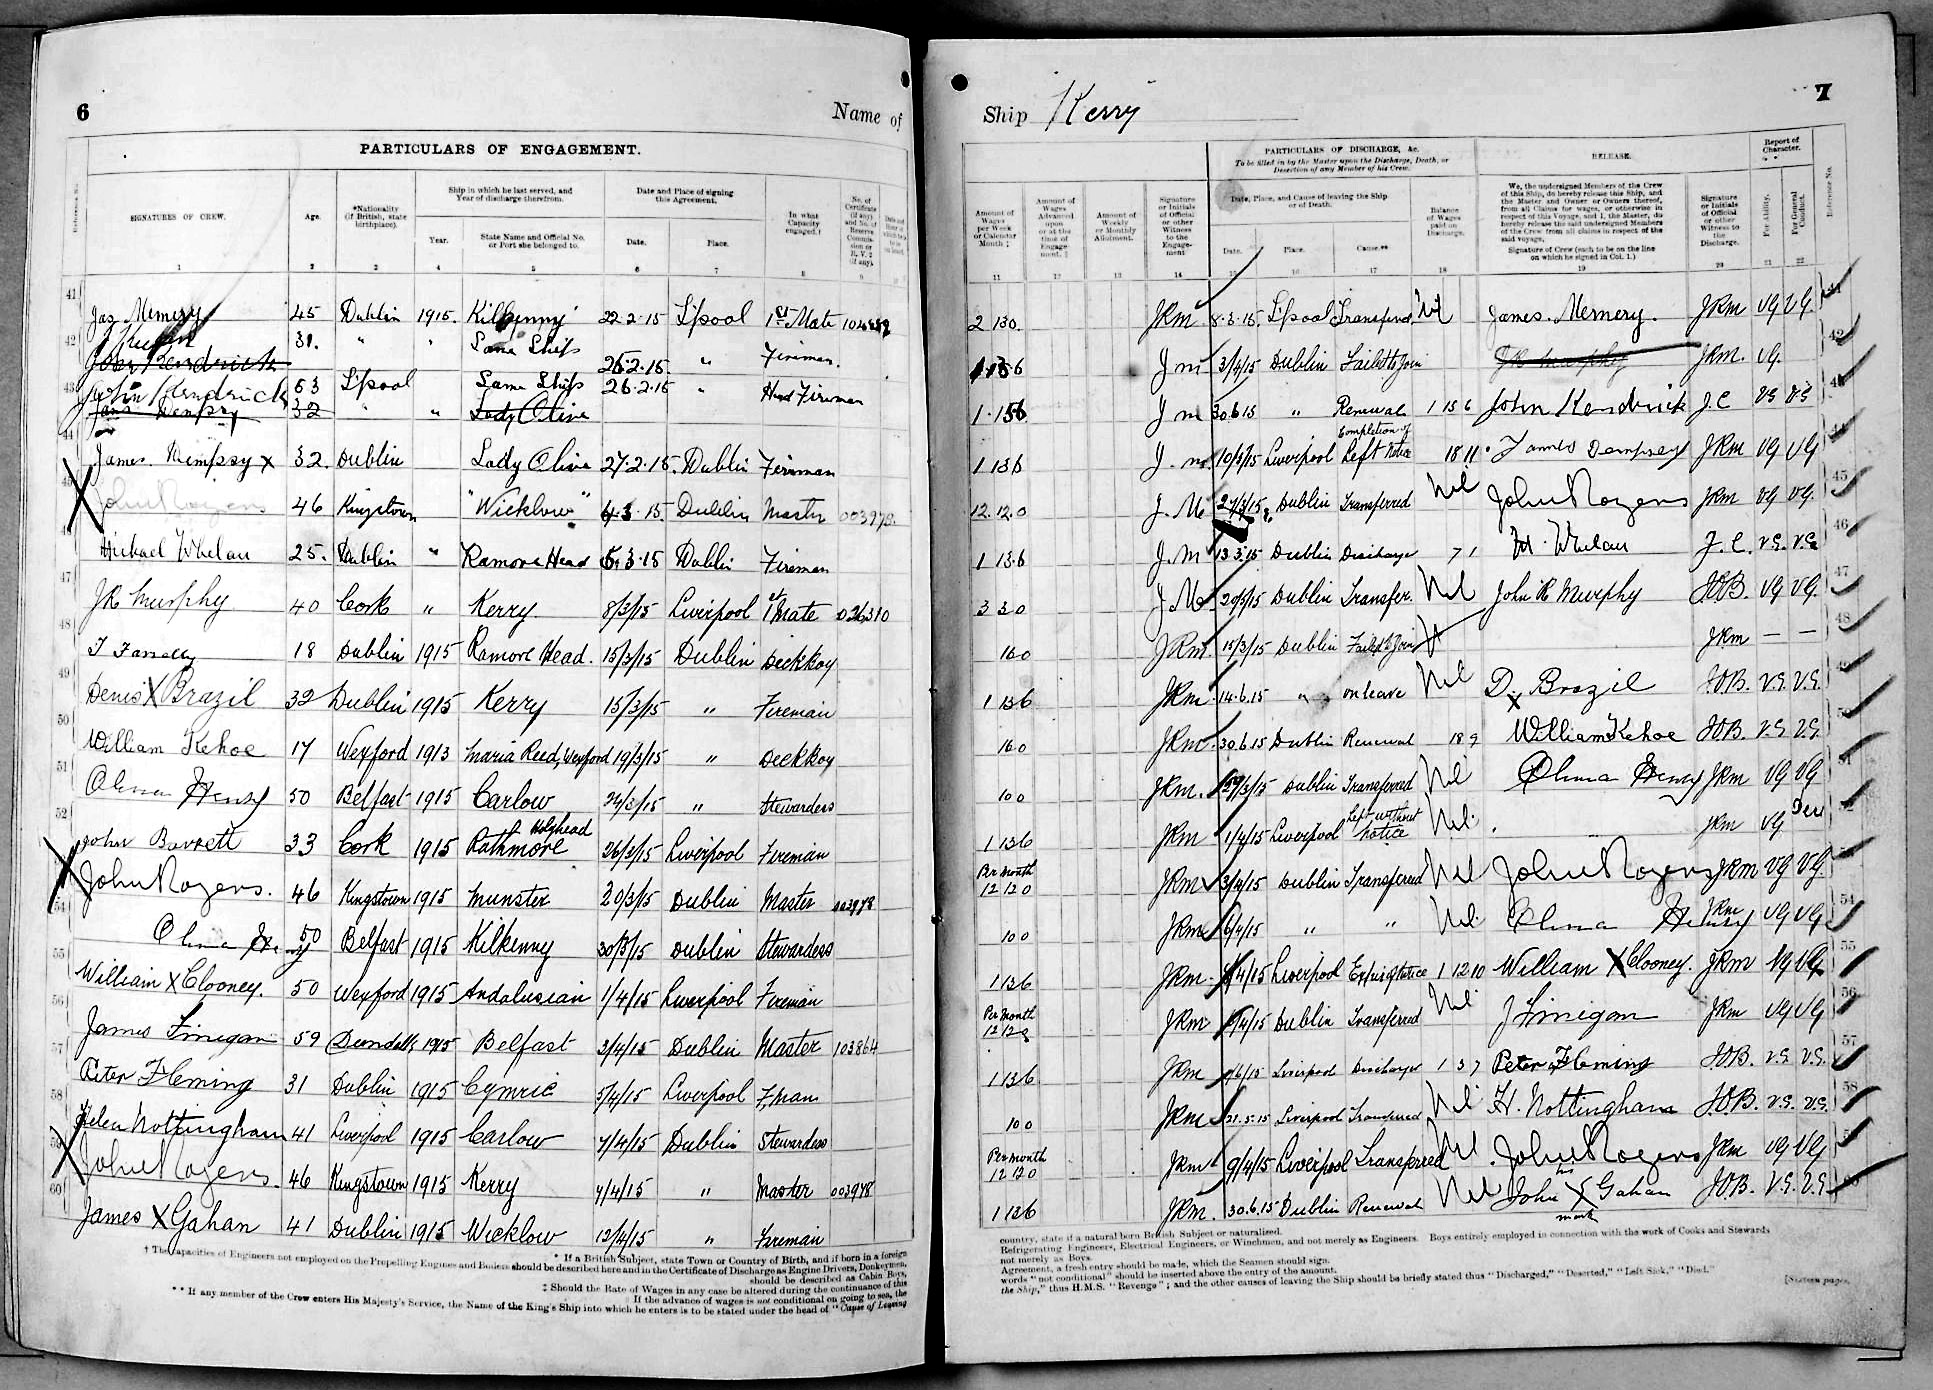 6
Name of
PARTICULARS OF ENGAGEMENT.
SIGNATURES OF CREW.
Age.
*Nationality (If British, state birthplace).
Ship in which he last served, and Year of discharge therefrom.
Year.
State Name and Official No. or Port she belonged to.
Date and Place of signing this Agreement.
Date.
Place.
In what Capacity engaged.†
1 2 3 4 5 6 7 8 9
41 Jas Memery 45 Dublin 1915. Kilkenny 22.2.15 L'pool 1st Mate
42 31. " " Same Ship 26.2.15 " Fireman
John Kendrick
43 John Kendrick 53 L'pool Same Ship 26.2.15 " Head Fireman
James Dempsy 32 " " Lady Olive
44 James Dempsy x 32. Dublin Lady Olive 27.2.15. Dublin Fireman
John Rogers 46 Kingstown "Wicklow" 4.3.15. Dublin Master 003978.
Michael Whelan 25. Dublin " Ramore Head 5.3.15 Dublin Fireman
47 JR Murphy 40 Cork " Kerry 8/3/15 Liverpool 1st Mate 026310
48 T Farrelly 18 Dublin 1915 Ramore Head. 15/3/15 Dublin Deckboy
49 Denis X Brazil 32 Dublin 1915 Kerry 15/3/15 " Fireman
50 William Kehoe 17 Wexford 1913 Maria Reed, Wexford 19/3/15 " Deckboy
51 Olivia Henry 50 Belfast 1915 Carlow 24/3/15 " Stewardess
52 John Barrett 33 Cork 1915 Rathmore Holyhead 26/3/15 Liverpool Fireman
John Rogers. 46 Kingstown 1915 Munster 30/3/15 Dublin Master 003978
54 50 Belfast 1915 Kilkenny 30/3/15 Dublin Stewardess
55 William X Clooney. 50 Wexford 1915 Andalusian 1/4/15 Liverpool Fireman
56 James Finigan 59 Dundalk 1915 Belfast 3/4/15 Dublin Master 103864
57 Peter Fleming 31 Dublin 1915 Cymric 5/4/15 Liverpool F,man
58 Helen Nottingham 41 Liverpool 1915 Carlow 7/4/15 Dublin Stewardess
59 John Rogers. 46 Kingstown 1915 Kerry 7/4/15 " Master 003978
60 James X Gahan 41 Dublin 1915 Wicklow 12/4/15 " Fireman
† The capacities of Engineers not employed on the Propelling Engines and Boilers should be described here and in the Certificate of Discharge as Engine Drivers, Donkeymen,
* If a British Subject, state Town or Country of Birth, and if born in a foreign
should be described as Cabin Boys,
‡ Should the Rate of Wages in any case be altered during the continuance of this
If the advance of wages is not conditional on going to sea, the
** If any member of the Crew enters His Majesty's Service, the Name of the King's Ship into which he enters is to be stated under the head of "Cause of Leaving
7
Ship Kerry
PARTICULARS OF DISCHARGE, &c.
To be filled in by the Master upon the Discharge, Death, or Desertion of any Member of his Crew.
RELEASE.
Report of Character.
Amount of Wages per Week or Calendar Month ‡
Amount of Wages Advanced upon or at the time of Engagement.
Amount of Weekly or Monthly Allotment.
Signature or Initials of Official or other Witness to the Engagement
Date, Place, and Cause of leaving the Ship or of Death.
Date.
Place.
Cause.**
Balance of Wages paid on Discharge.
We, the undersigned Members of the Crew of this Ship, do hereby release this Ship, and the Master and Owner or Owners thereof, from all Claims for wages, or otherwise in respect of this Voyage, and I, the Master, do hereby release the said undersigned Members of the Crew from all claims in respect of the said voyage.
Signature of Crew (each to be on the line on which he signed in Col. 1.)
Signature or Initials of Official or other Witness to the Discharge.
For Ability.
For General Conduct.
Reference No.
11 12 13 14 15 16 17 18 19 20 21 22
2 13 0. JRM 8.3.15. L'pool Transferred Nil James. Memery. JRM VG VG. 41
1 13 6 J m 3/4/15 Dublin Failed to Join JRM. VG. 42
1 15 6 J m 30.6.15 " Renewal 1 15 6 John Kendrick J.C VG VG 43
1 13 6 J. m 10/3/15 Liverpool Completion of Left Notice 18 11 James Dempsey JRM VG VG 44
12. 12. 0 J. M Dublin Transferred Nil John Rogers JRM VG VG. 45
1 13.6 J. M 13.3.15 Dublin Discharge 7 1 M. Whelan J.C. V.G. V.G. 46
3 3 0 J. M 20/3/15 Dublin Transfer. Nil John R Murphy J.O.B. VG VG. 47
16 0 JRM. 15/3/15 Dublin Failed to Join JRM — — 48
1 13 6 JRM 14.6.15 " on leave Nil D. x Brazil J.O.B. V.G. V.G. 49
16 0 JRM. 30.6.15 Dublin Renewal 18 9 William Kehoe J.O.B. V.G V.G. 50
10 0 JRM. Dublin Transferred Nil Olivia Henry JRM VG VG 51
1 13 6 JRM 1/4/15 Liverpool Left without notice Nil. JRM VG
Per month 12 12 0 JRM 3/4/15 Dublin Transferred Nil John Rogers JRM VG VG.
10 0 JRM 6/4/15 " " Nil. Olivia Henry JRM VG VG. 54
1 13 6 JRM. Liverpool Expiry Notice 1 12 10 William X Clooney. JRM VG VG. 55
Per Month 12 12 0 JRM Dublin Transferred Nil J Finigan JRM VG VG 56
1 13 6 JRM Liverpool Discharge 1 3 7 Peter Fleming J.O.B. V.G. V.G. 57
10 0 JRM 31.5.15 Liverpool Transferred Nil H. Nottingham J.O.B. V.G. V.G. 58
Per month 12 12 0 JRM 9/4/15 Liverpool Transferred Nil. John Rogers JRM VG VG
1 13 6 JRM. 30.6.15 Dublin Renewal Nil John his X mark Gahan J.O.B. V.G. V.G.
country, state if a natural born British Subject or naturalized.
Refrigerating Engineers, Electrical Engineers, or Winchmen, and not merely as Engineers. Boys entirely employed in connection with the work of Cooks and Stewards
not merely as Boys.
Agreement, a fresh entry should be made, which the Seamen should sign.
words "not conditional" should be inserted above the entry of the amount.
the Ship," thus H.M.S. "Revenge"; and the other causes of leaving the Ship should be briefly stated thus "Discharged," "Deserted," "Left Sick," "Died."
[Sixteen pages.